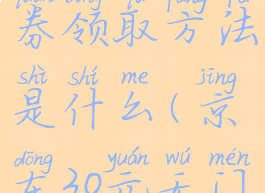 券领取方法
shì shí me jīng
是什么(京
dōng yuán wú mén
东30元无门